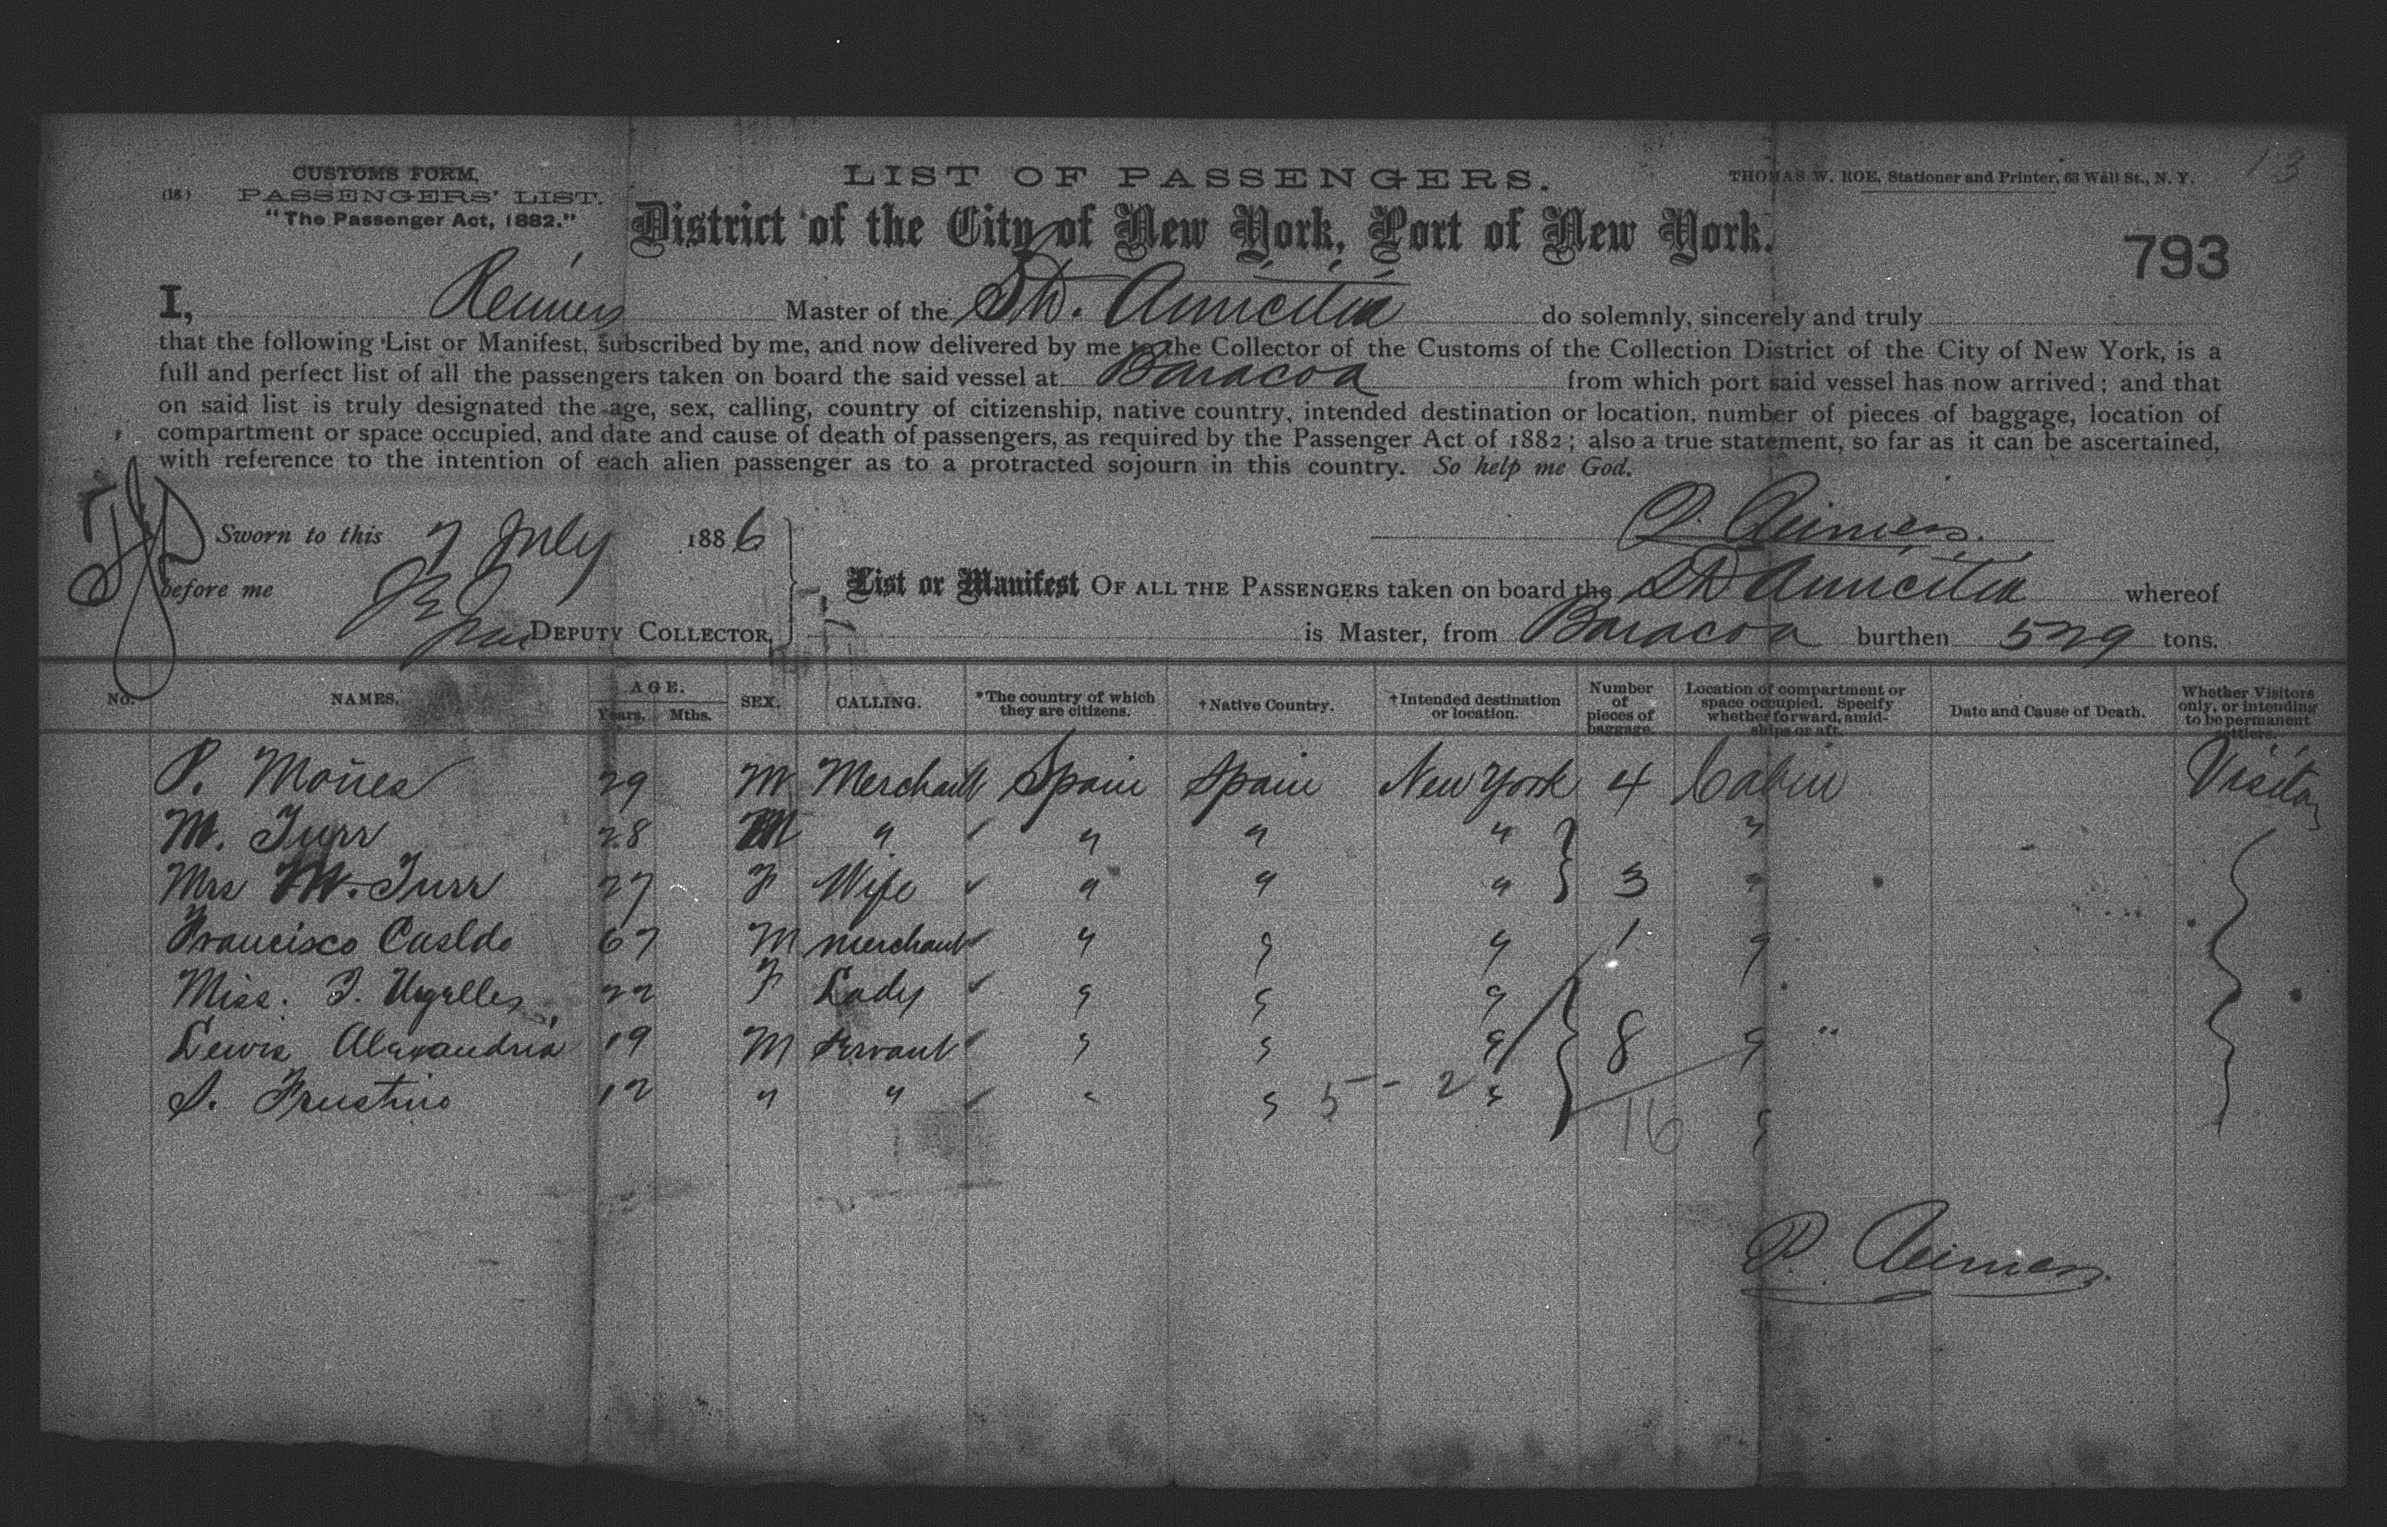 13
CUSTOMS FORM.
(18) PASSENGERS' LIST.
"The Passenger Act, 1882."
LIST OF PASSENGERS.
THOMAS W. ROE, Stationer and Printer, 63 Wall St., N. Y.
District of the City of New York, Port of New York.
793
I, Reimers Master of the do solemnly, sincerely and truly
that the following List or Manifest, subscribed by me, and now delivered by me to the Collector of the Customs of the Collection District of the City of New York, is a
full and perfect list of all the passengers taken on board the said vessel at Baracoa from which port said vessel has now arrived; and that
on said list is truly designated the age, sex, calling, country of citizenship, native country, intended destination or location, number of pieces of baggage, location of
compartment or space occupied, and date and cause of death of passengers, as required by the Passenger Act of 1882; also a true statement, so far as it can be ascertained,
with reference to the intention of each alien passenger as to a protracted sojourn in this country. So help me God.
Sworn to this 7 July 1886
P. Reimers.
before me
DEPUTY COLLECTOR,
List or Manifest OF ALL THE PASSENGERS taken on board the whereof
is Master, from Baracoa burthen 529 tons.
No. NAMES. AGE. Years. Mths. SEX. CALLING. *The country of which they are citizens. †Native Country. †Intended destination or location. Number of pieces of baggage. Location of compartment or space occupied. Specify whether forward, amidships or aft. Date and Cause of Death. Whether Visitors only, or intending to be permanent settlers.
P. Mones 29 M Merchant Spain Spain New York 4 Cabin Visitor
M. Turr 28 M " " " " "
Mrs M. Turr 27 F Wife " " " 3 "
Francisco Casldo 67 M merchant " " " 1 "
Miss. I. Ugalles 22 F Lady " " "
Lewis Alexandria 19 M Servant " " " 8 " "
S. Frustino 12 " " " " 5 - 2 " "
16
P. Reimers.